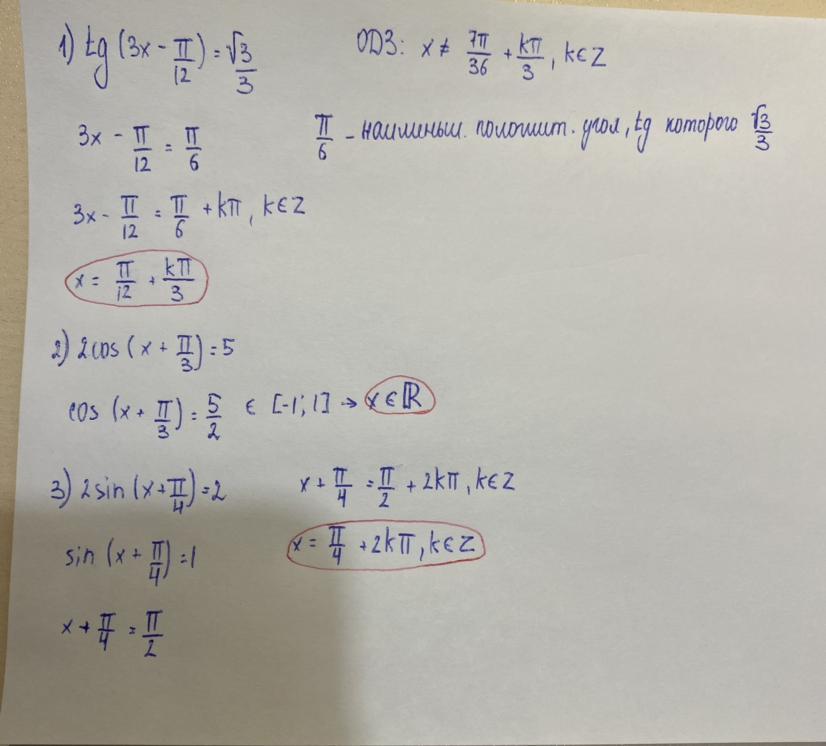 1) tg (3x - π/12) = √3/3
ОДЗ: x ≠ 7π/36 + kπ/3, k∈Z
3x - π/12 = π/6
π/6 - наименьш. положит. угол, tg которого √3/3
3x - π/12 = π/6 + kπ, k∈Z
x = π/12 + kπ/3
2) 2cos (x + π/3) = 5
cos (x + π/3) = 5/2 ∈ [-1; 1] → x∈ℝ
3) 2sin (x + π/4) = 2
sin (x + π/4) = 1
x + π/4 = π/2
x + π/4 = π/2 + 2kπ, k∈Z
x = π/4 + 2kπ, k∈Z